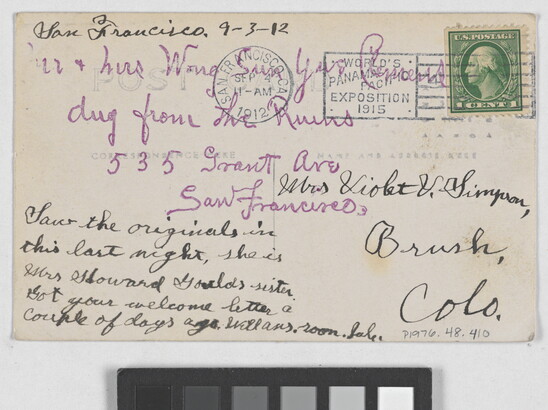 San Francisco. 9-3-12
Mr & Mrs Wong Sun Yue Clemens
dug from the Ruins
535 Grant Ave
San Francisco.
SAN FRANCISCO, CA
SEP 4
11-AM
1912
WORLD'S
PANAMA
PACIFIC
EXPOSITION
1915
U.S. POSTAGE
1 CENT 1
POST
CORRESPONDENCE HERE
NAME AND ADDRESS HERE
Mrs Violet V. Simpson,
Brush,
Colo.
Saw the originals in
this last night, she is
Mrs Howard Goulds sister.
Got your welcome letter a
couple of days ago. Will ans. soon.
P1976.48.410